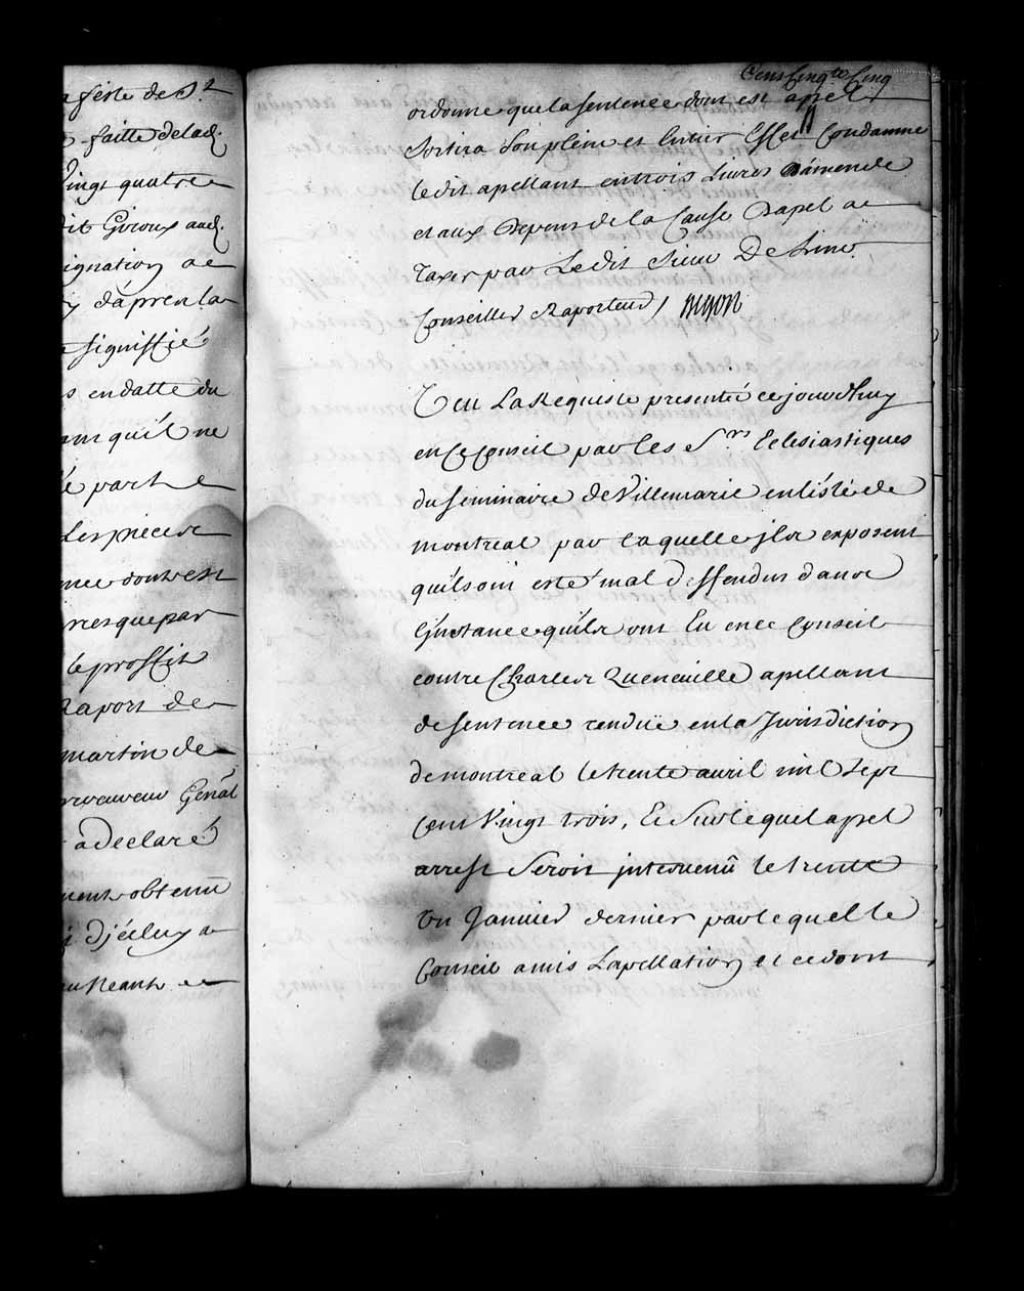 a feste de St
faitte de lad.
Vingt quatre
dit Giroux aud.
ignation ae
y d'apren la
signiffié
s en datte du
qu'il ne
é part e
Les pieces
nce dont est
res que par
le proffit
Raport de
martin de
procureur Genal
a declaré
obtenu
neant
Cent Cinq.te Cinq
ordonne que la sentence dont est apel
Sortira Son plein et Entier Effet Condamne
ledit apellant en trois Livres d'amende
et aux Depens de la Cause Dapel ae
Taxer par Ledit Sieur De Lino
Conseiller Raporteur / Begon
Veu La Requiste presentée ce jourdhuy
en Ce Conseil par les Srs Eclesiastiques
du Seminaire de Villemarie en l'isle de
montreal par laquelle jls exposent
qu'ils ont esté mal deffendus dans
L'jnstance qu'ils ont Eu en ce Conseil
contre Charles Queneuille apellant
de sentence renduë en la Jurisdiction
de montreal le trente auril mil Sept
Cent Vingt trois, Et Sur lequel apel
arrest Seroit jnteruenu le trente
Un Januier dernier par lequel le
Conseil a mis Lapellation et ce dont